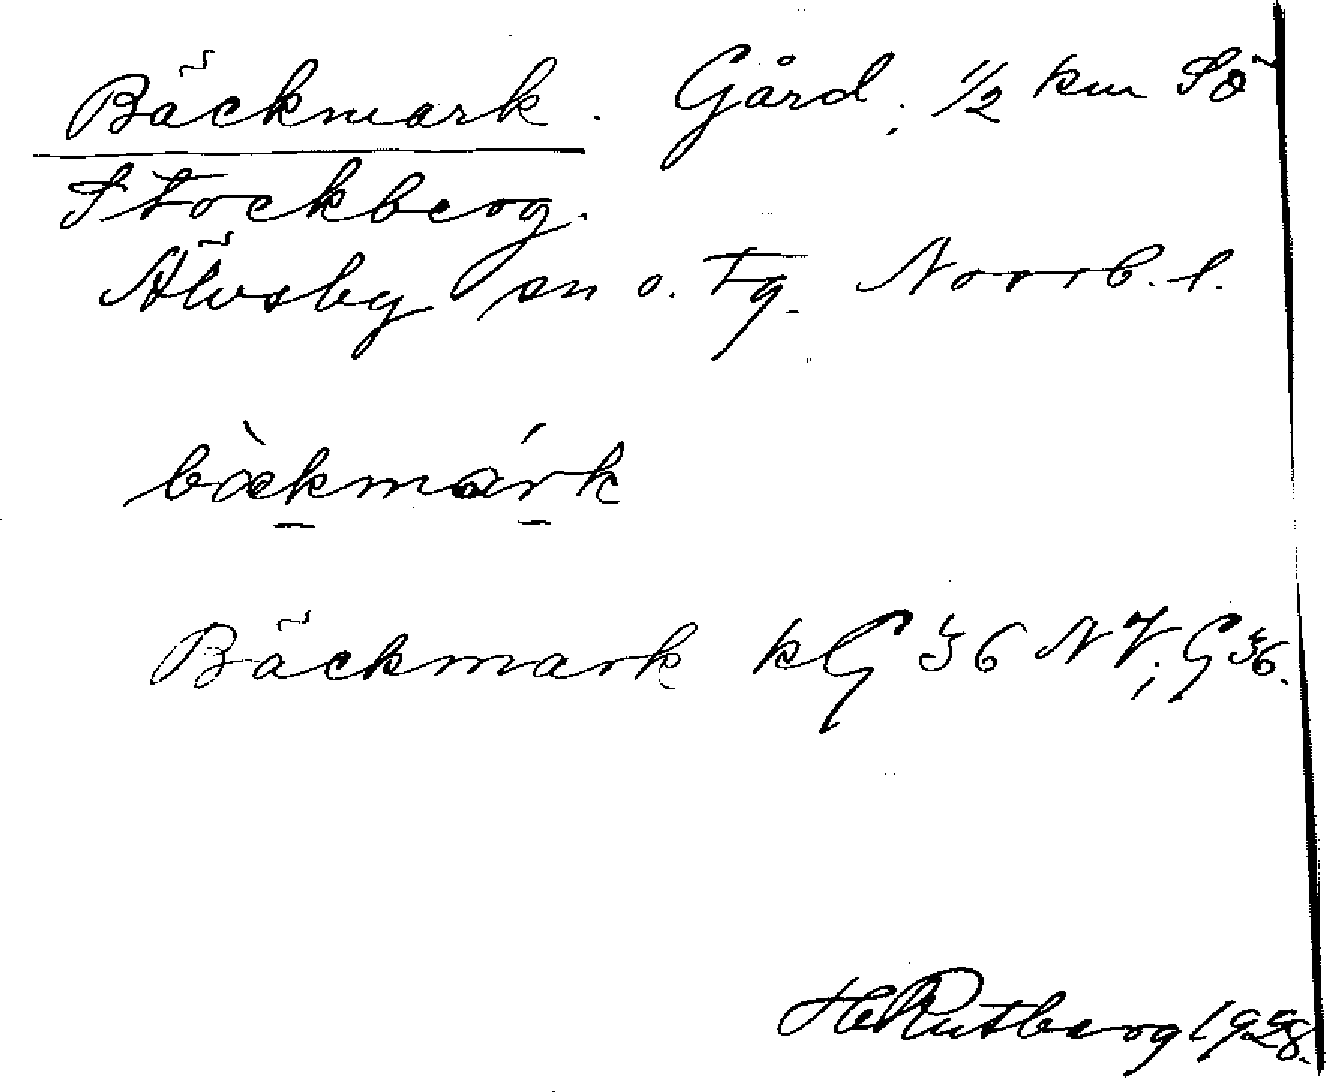 Bäckmark. Gård. 1/2 km SÖ
Stockberg.
Älvsby sn o. tg. Norrb. l.
bækmárk
Bäckmark kG 36 NV; G 36.
H Rutberg 1928.